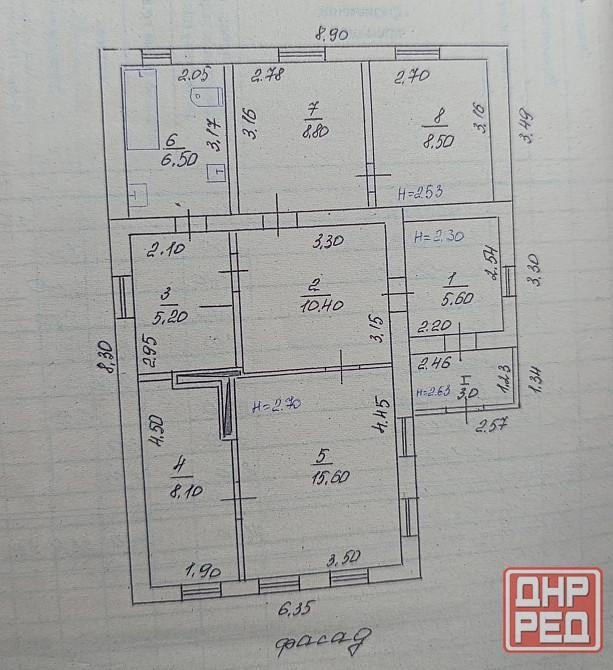 8.90
2.05
2.78
2.70
6
6.50
3,17
3,16
7
8.80
8
8.50
3,16
3,49
H=2.53
2.10
3,30
H=2.30
2.54
3
5.20
2
10.40
1
5.60
3,30
2.95
3,15
2.20
8,30
2.46
H=2.63
I
3,0
1,23
1,34
H=2.70
4,50
4,45
2.57
4
8,10
5
15,60
1,90
3,50
6,35
фасад
ДНР
РЕД